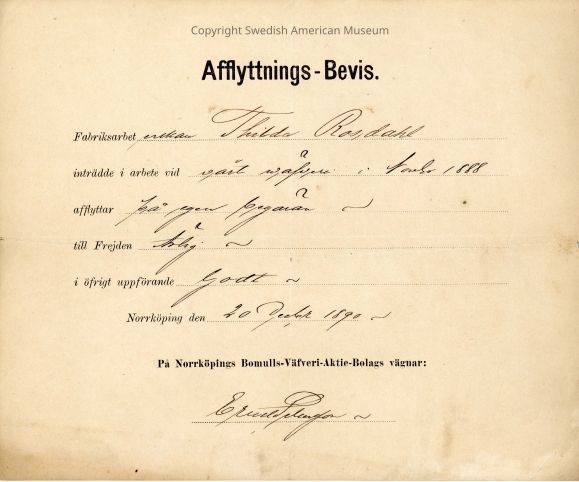 Copyright Swedish American Museum
Afflyttnings-Bevis.
Fabriksarbet erskan Thilda Rosdahl
inträdde i arbete vid vårt väfveri i Novbr 1888
afflyttar på egen begäran
till Frejden ärlig
i öfrigt uppförande Godt
Norrköping den 20 Decbr 1890
På Norrköpings Bomulls-Väfveri-Aktie-Bolags vägnar: